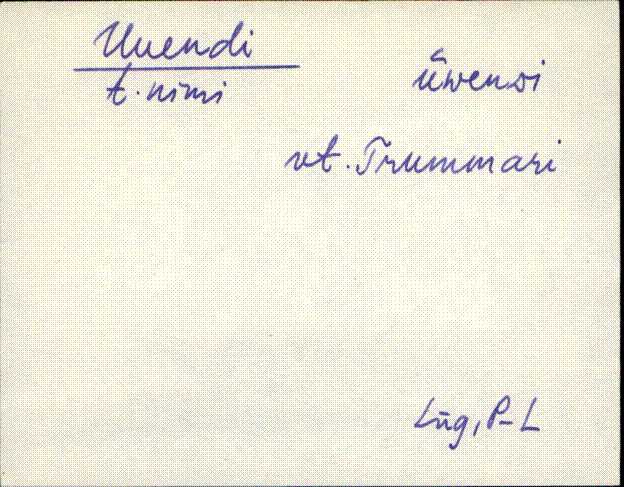 Uuendi
t. nimi
ūwenᴅi
vt. Trummari
Lüg, P-L